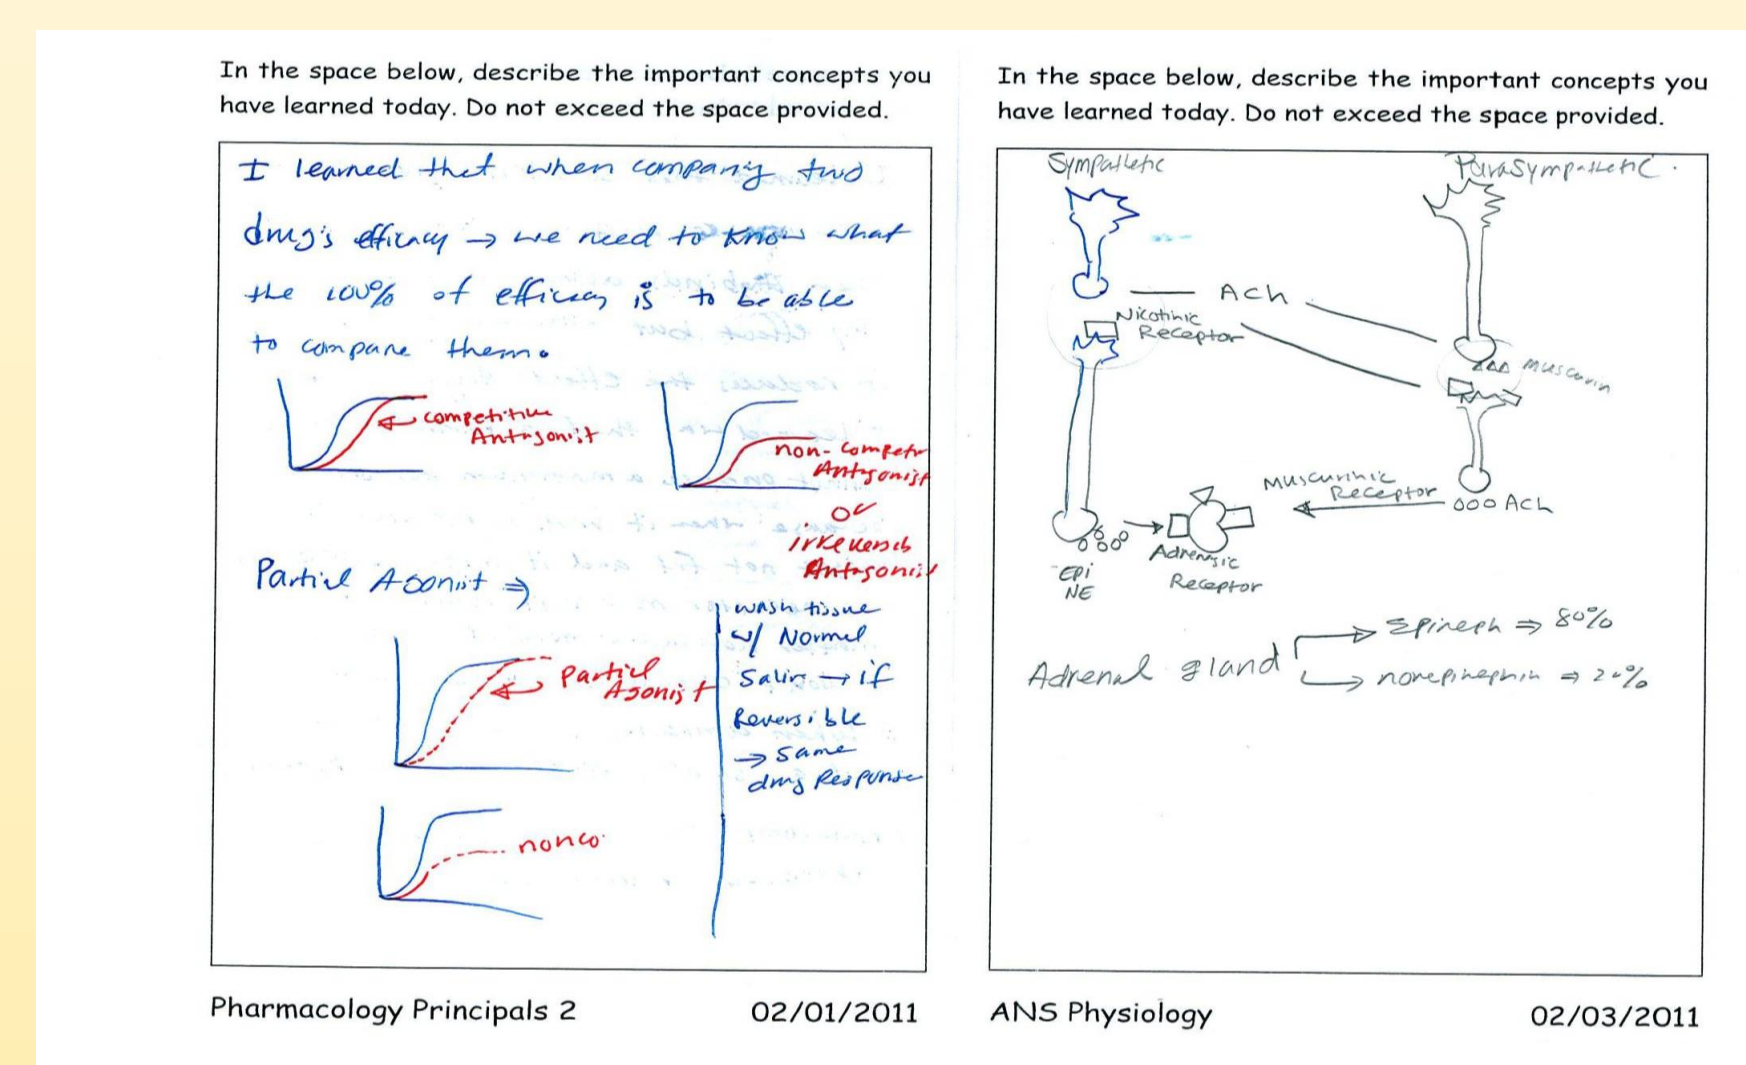 In the space below, describe the important concepts you
have learned today. Do not exceed the space provided.
I learned that when comparing two
drug's efficacy → we need to know what
the 100% of efficacy is to be able
to compare them.
competitive
Antagonist
non-compet
Antagonist
or
irreversib
Antagonist
Partial Agonist ⇒
Partial
Agonist
nonco
wash tissue
w/ Normal
Salin → if
Reversible
→ same
drug Response
Pharmacology Principals 2 02/01/2011
In the space below, describe the important concepts you
have learned today. Do not exceed the space provided.
Sympathetic Parasympathetic.
ACh
Nicotinic
Receptor
Muscarin
Muscurinic
Receptor
ACh
Adrenergic
Receptor
EPi
NE
Adrenal gland
Epineph ⇒ 80%
norepinephrin ⇒ 20%
ANS Physiology 02/03/2011